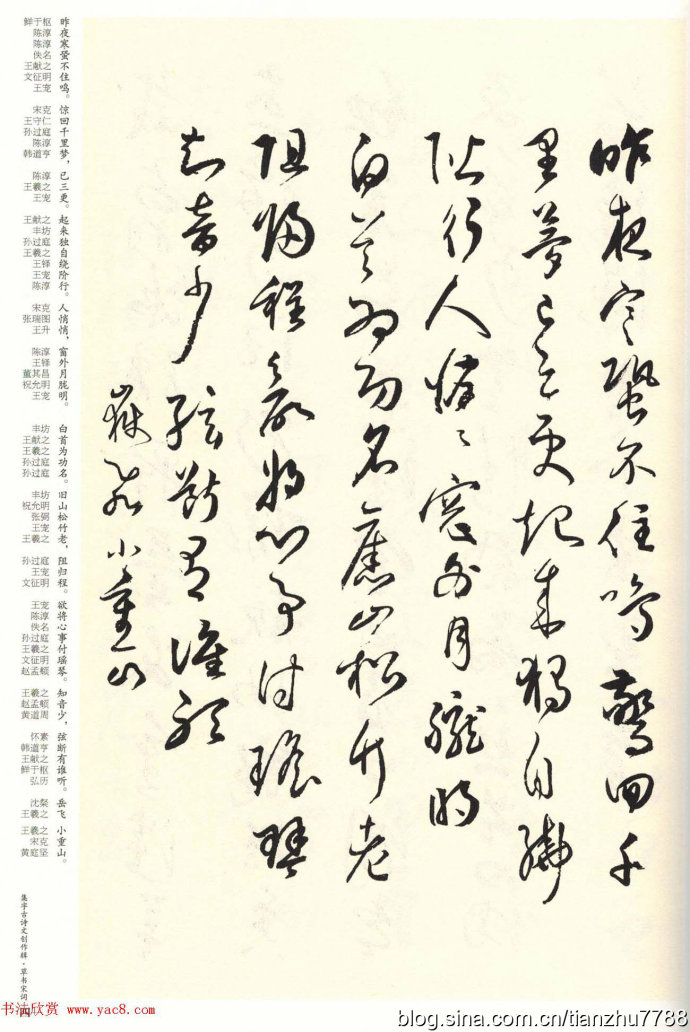 昨夜寒蛩不住鳴驚回千
里夢已三更起來獨自繞
階行人悄々窗外月朧明
白首為功名舊山松竹老
阻歸程欲將心事付瑤琴
知音少絃斷有誰聽
嶽飛小重山
昨夜寒蛩不住鸣。惊回千里梦，已三更。起来独自绕阶行。人悄悄，窗外月胧明。白首为功名。旧山松竹老，阻归程。欲将心事付瑶琴。知音少，弦断有谁听。岳飞小重山。
鲜于枢 陈淳 陈淳 佚名 王献之 文征明 王宠 宋克 王守仁 孙过庭 陈淳 韩道亨 陈淳 王羲之 王宠 王献之 丰坊 孙过庭 王羲之 王铎 王宠 陈淳 宋克 张瑞图 王升 陈淳 王铎 董其昌 祝允明 王宠 丰坊 王献之 王羲之 孙过庭 孙过庭 丰坊 祝允明 张弼 王宠 王羲之 孙过庭 王宠 文征明 王宠 陈淳 佚名 孙过庭 王羲之 文征明 赵孟頫 王羲之 赵孟頫 黄道周 怀素 韩道亨 王献之 鲜于枢 弘历 沈粲 王羲之 王羲之 宋克 黄庭坚
集字古诗文创作辑·草书宋词 四
书法欣赏 www.yac8.com
blog.sina.com.cn/tianzhu7788